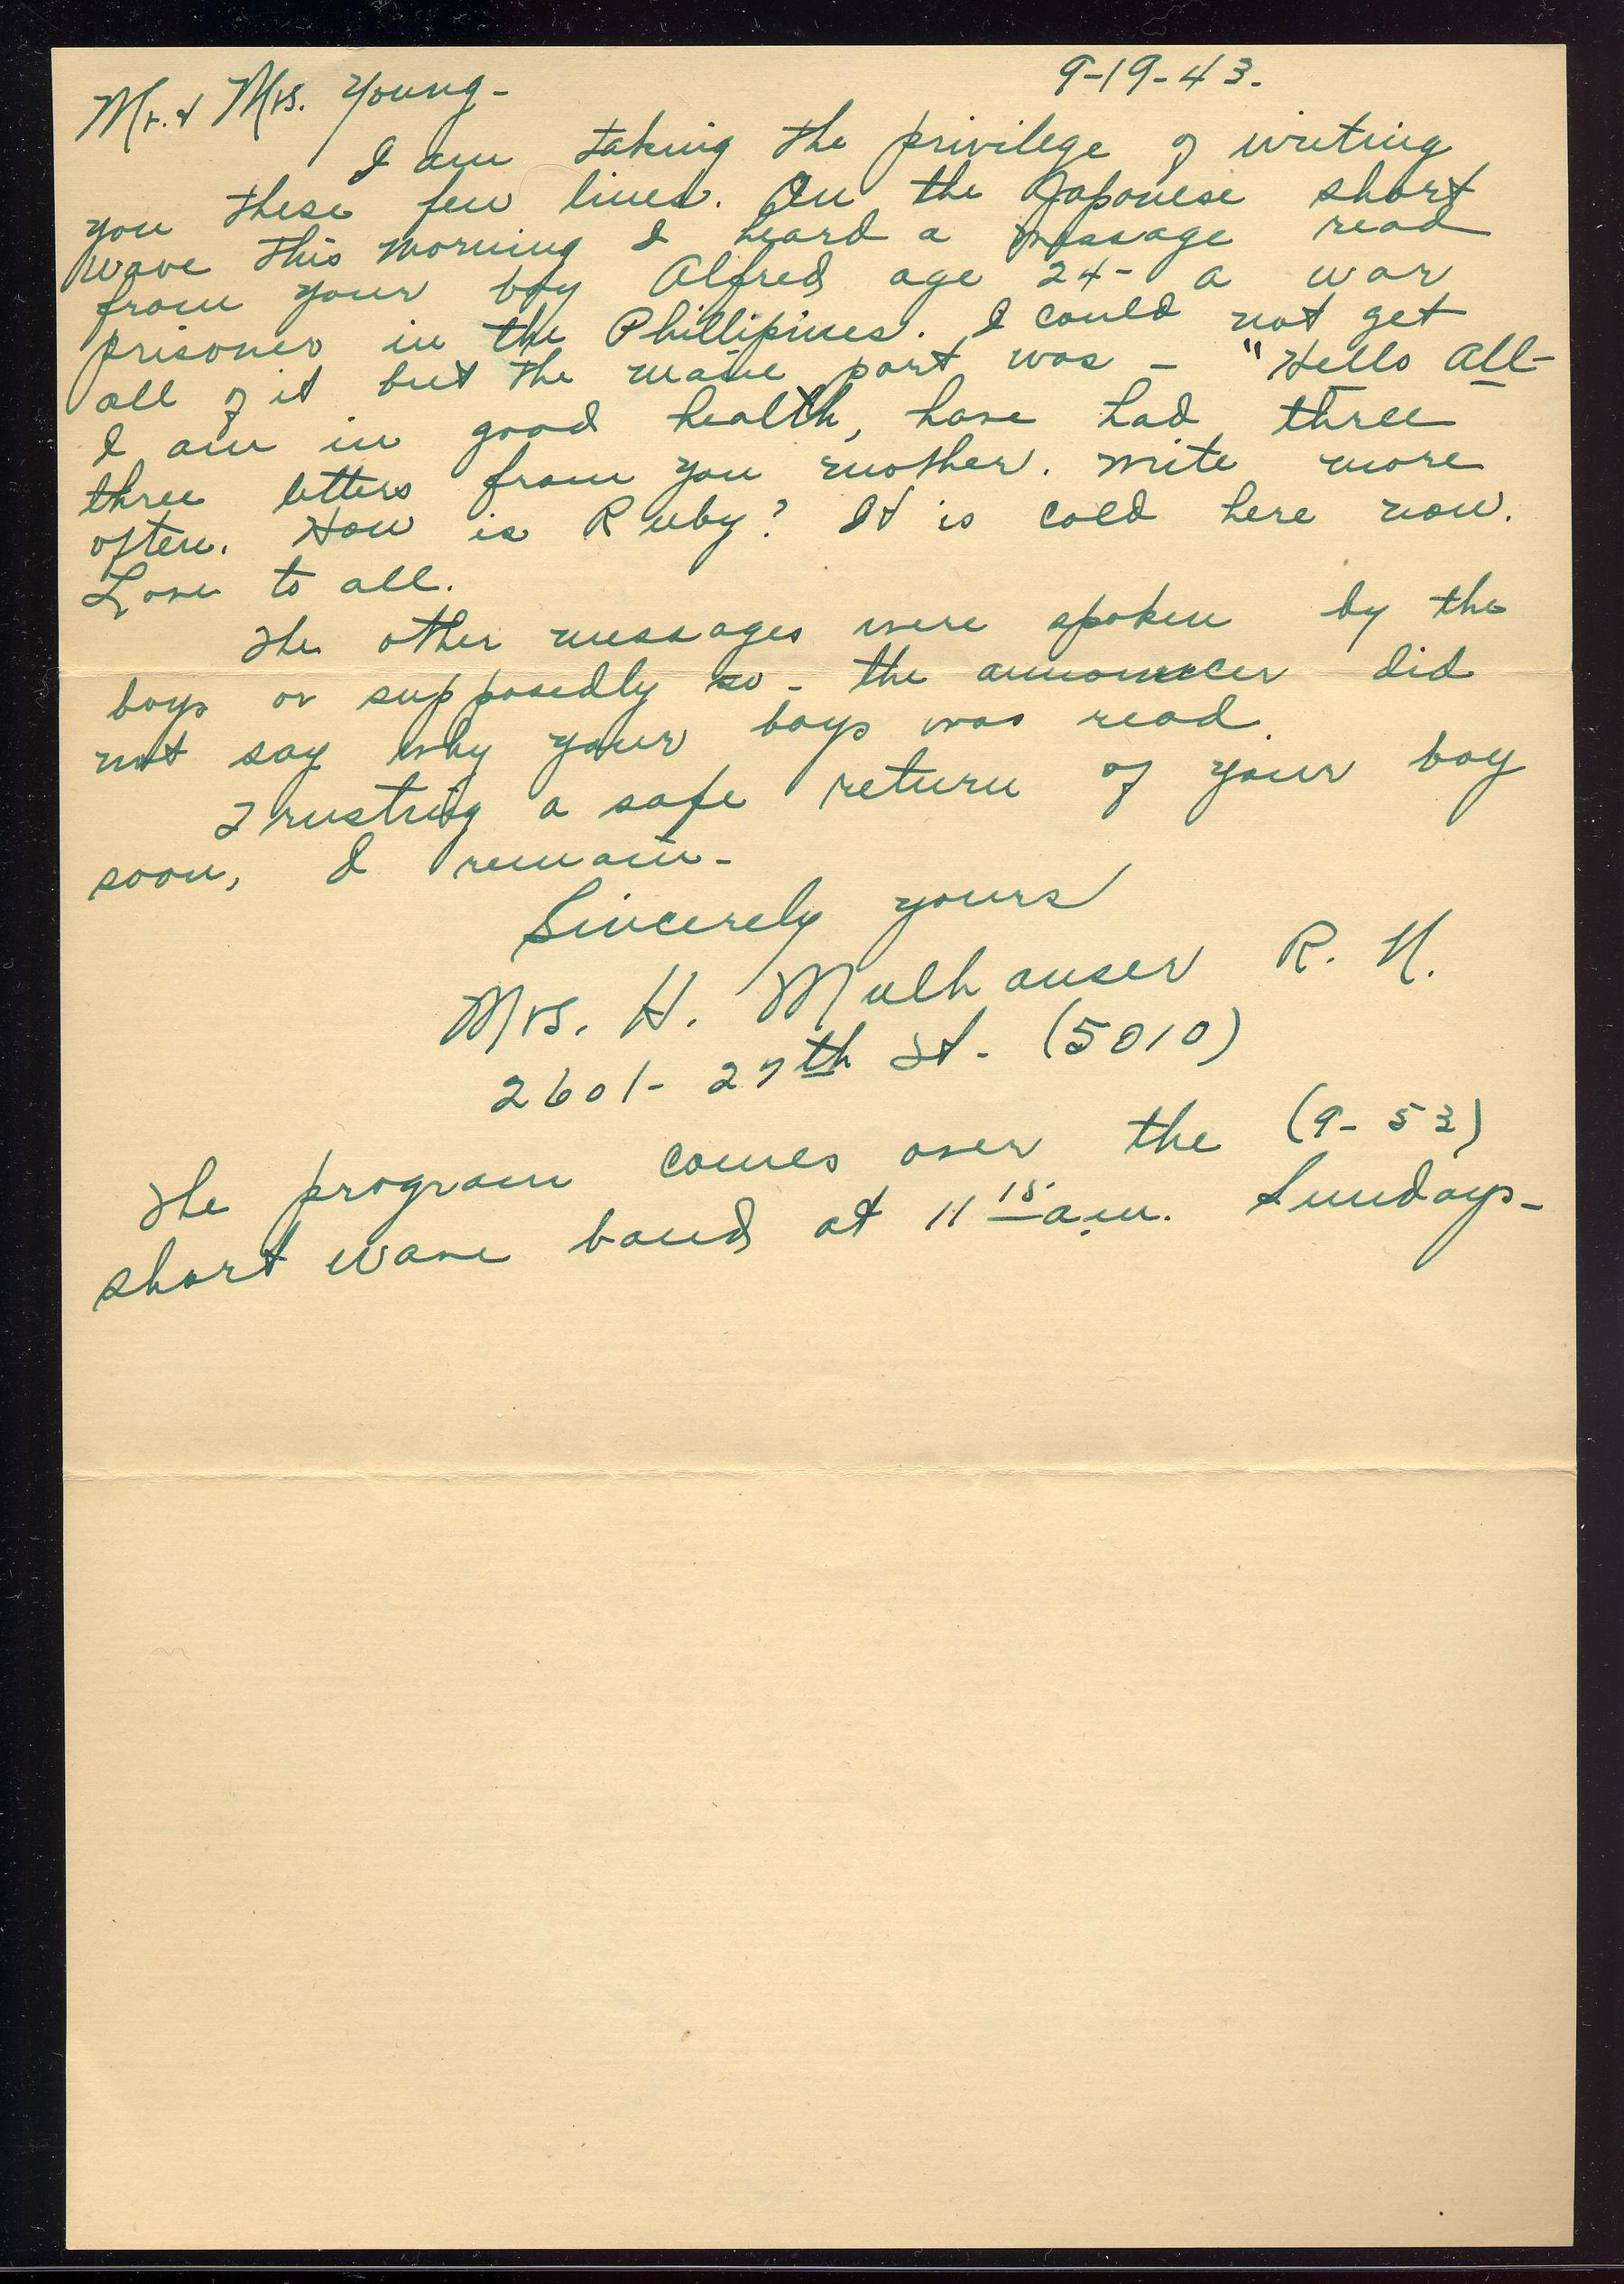 9-19-43.
Mr. & Mrs. Young-
I am taking the privilege of writing
you these few lines. On the Japanese short
wave this morning I heard a message read
from your boy Alfred age 24- a war
prisoner in the Phillipines. I could not get
all of it but the maine part was - "Hello All-
I am in good health, have had three
three letters from you mother. Write more
often. How is Ruby? It is cold here now.
Love to all.
The other messages were spoken by the
boys or supposedly so - the announcer did
not say why your boys was read.
Trusting a safe return of your boy
soon, I remain-
Sincerely yours
Mrs. H. Mulhauser R. N.
2601- 27th St. (5010)
The program comes over the (9-53)
short wave band at 11 15 a.m. Sundays-